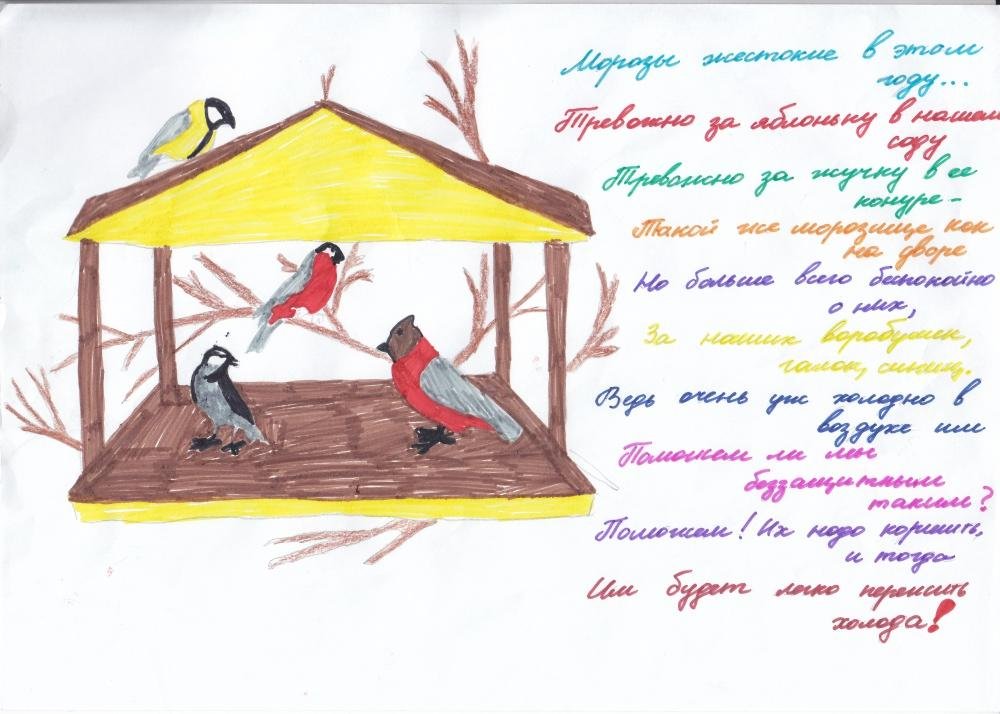 Морозы жестокие в этом
году...
Тревожно за яблоньку в нашем
саду
Тревожно за жучку в ее
конуре -
Такой же морозище как
на дворе
Но больше всего беспокойно
о них,
За наших воробушек,
галок, синиц.
Ведь очень уж холодно в
воздухе им
Поможем ли мы
беззащитным
таким?
Поможем! Их надо кормить,
и тогда
Им будет легко пережить
холода!